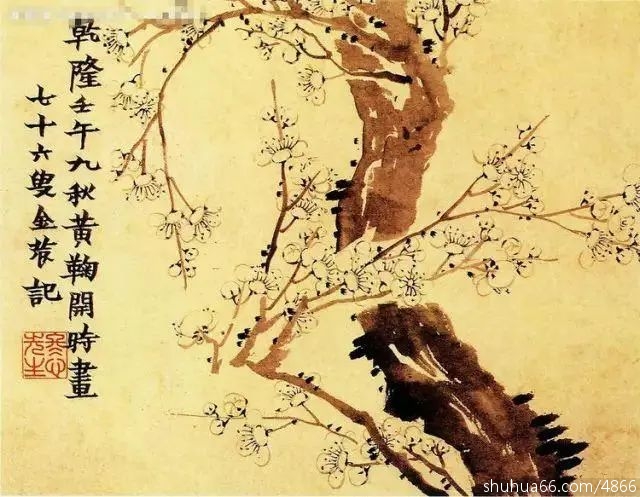 乾隆壬午九秋黄鞠開時畫
七十六叟金農記
冬心
先生
shuhua66.com/4866